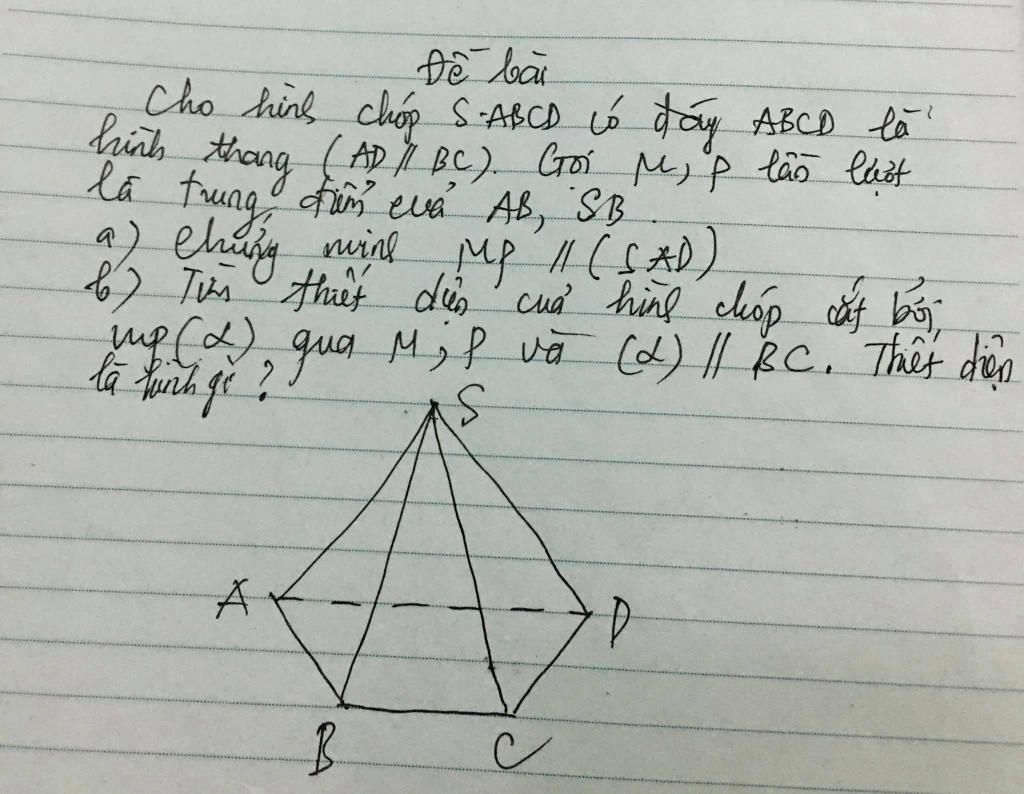 Đề bài
Cho hình chóp S.ABCD có đáy ABCD là
hình thang (AD // BC). Gọi M, P lần lượt
là trung điểm của AB, SB.
a) Chứng minh MP // (SAD)
b) Tìm thiết diện của hình chóp cắt bởi
mp(α) qua M, P và (α) // BC. Thiết diện
là hình gì?
S
A
D
B
C